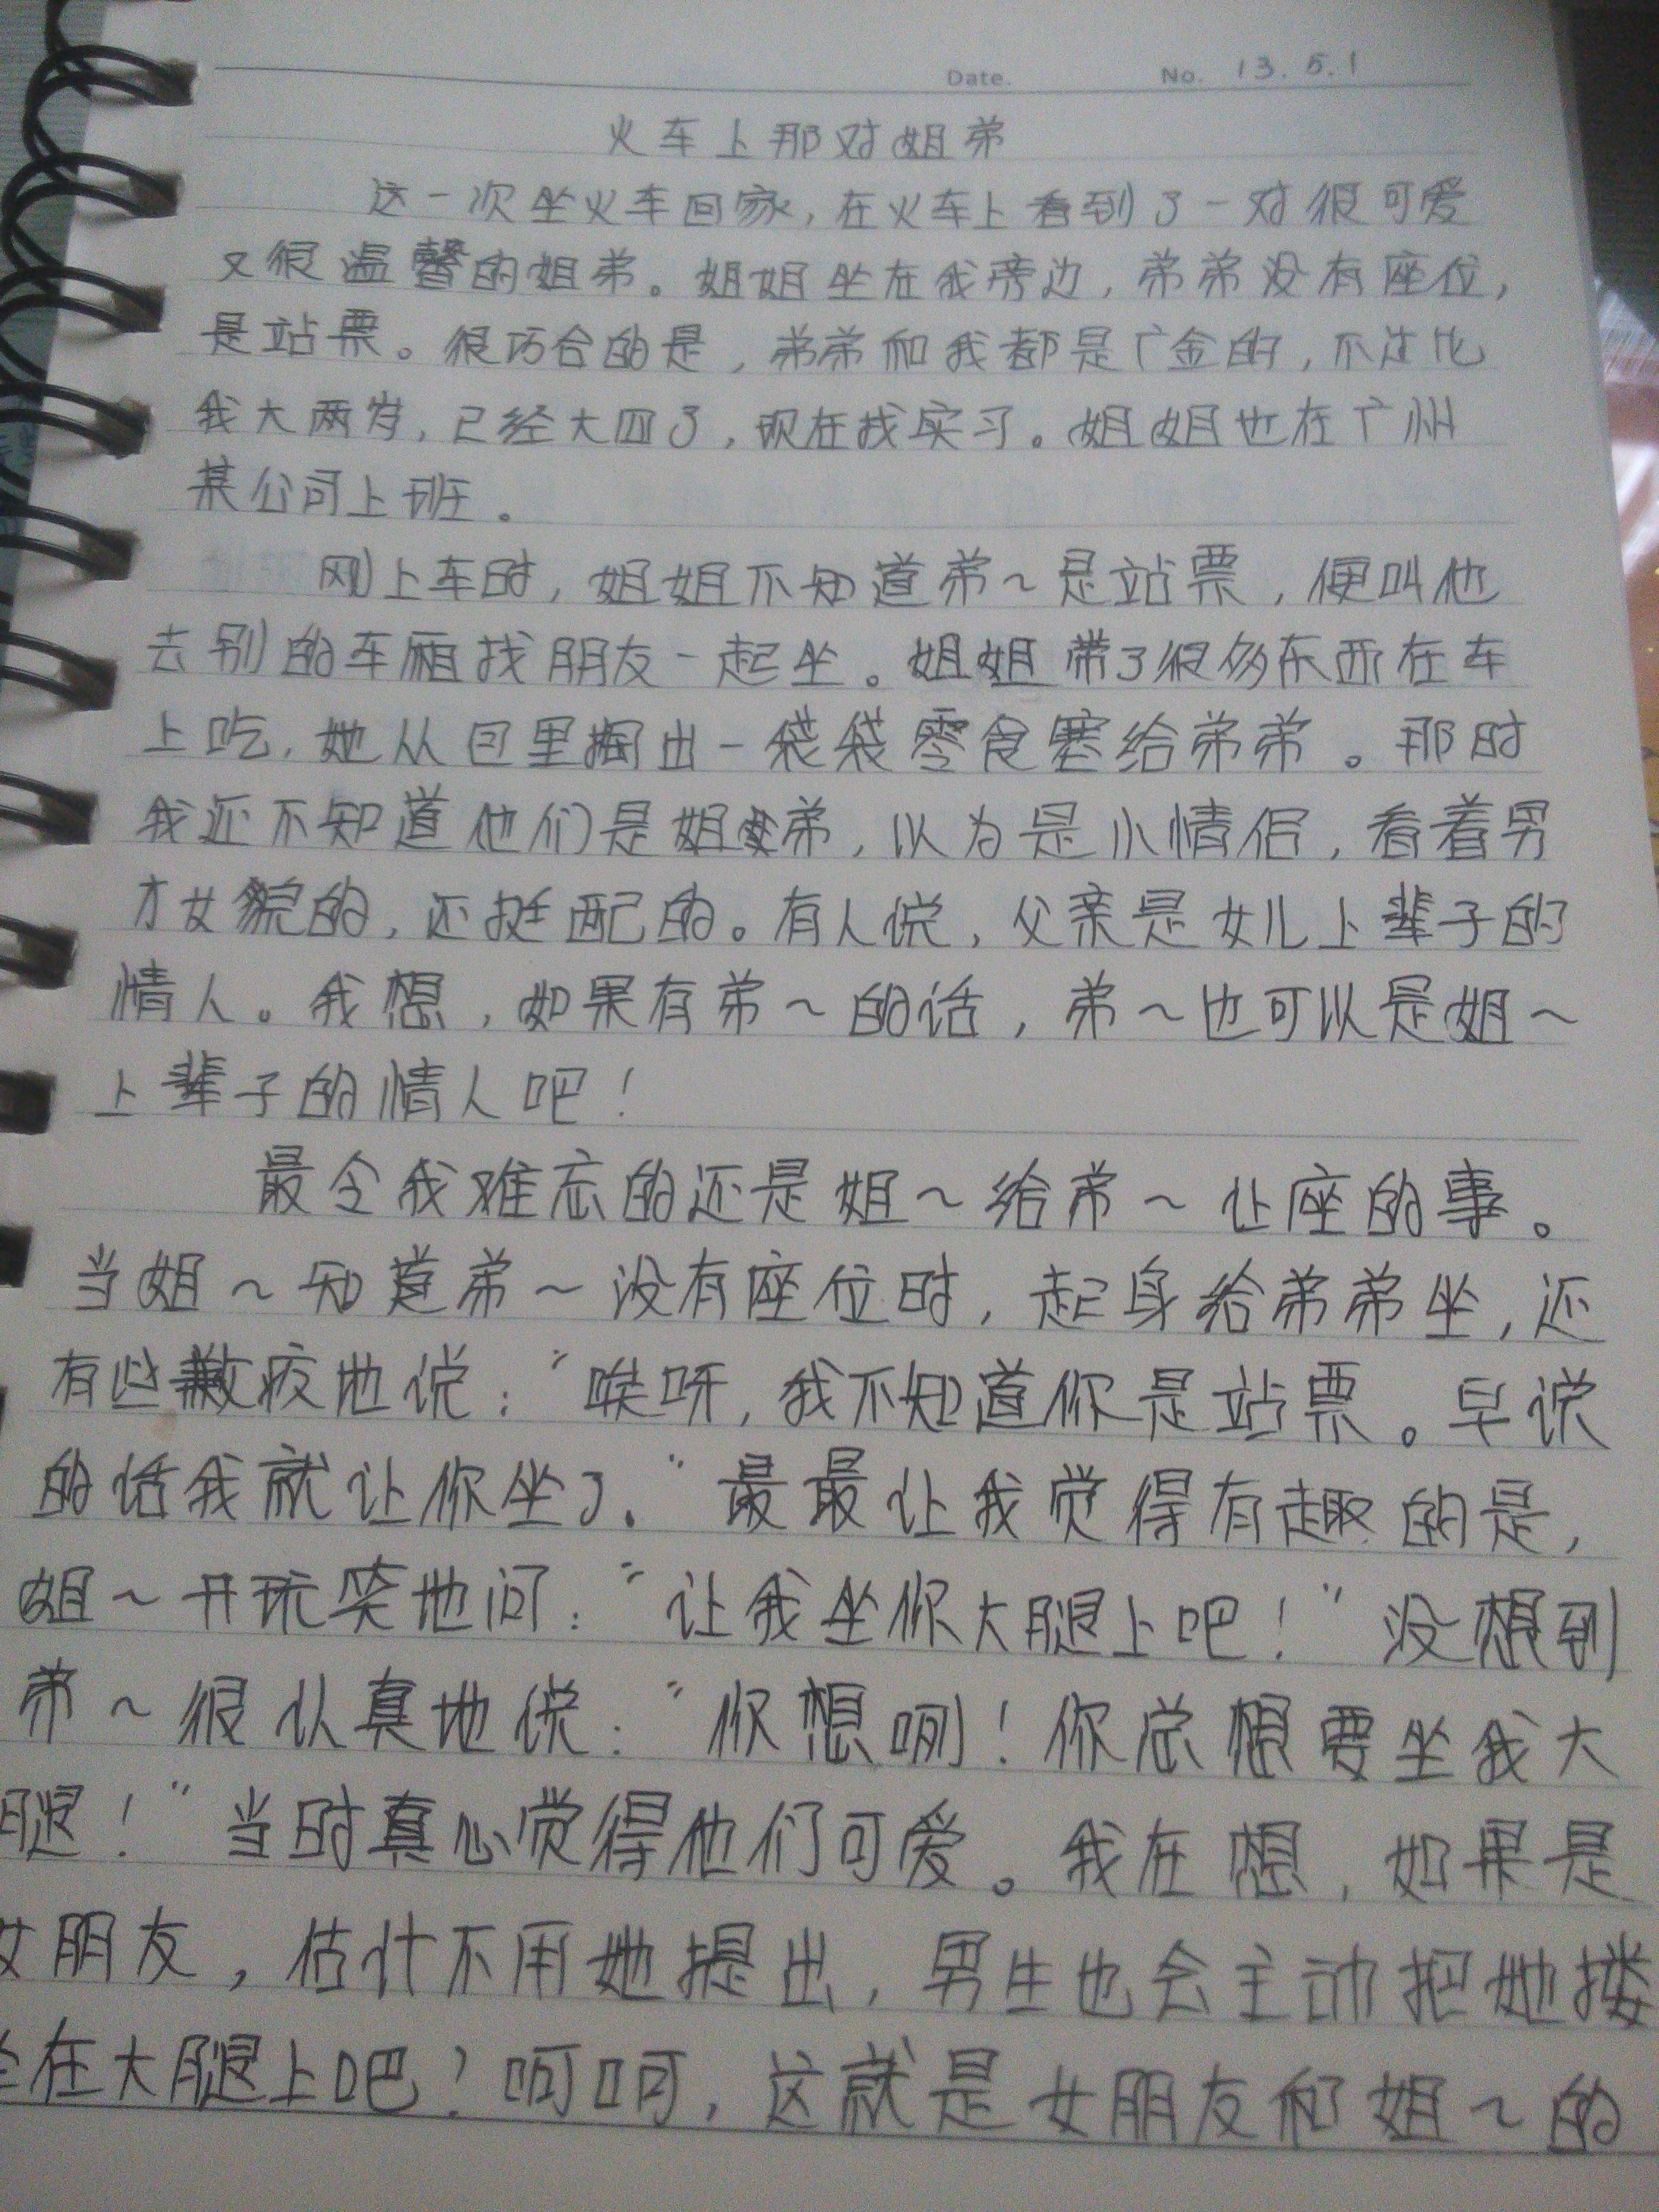 Date. No. 13.5.1
火车上那对姐弟
这一次坐火车回家,在火车上看到了一对很可爱
又很温馨的姐弟。姐姐坐在我旁边,弟弟没有座位,
是站票。很巧合的是,弟弟和我都是广金的,不过比
我大两岁,已经大四了,现在找实习。姐姐也在广州
某公司上班。
刚上车时,姐姐不知道弟~是站票,便叫他
去别的车厢找朋友一起坐。姐姐带了很多东西在车
上吃,她从包里掏出一袋袋零食塞给弟弟。那时
我还不知道他们是姐弟,以为是小情侣,看着男
才女貌的,还挺配的。有人说,父亲是女儿上辈子的
情人。我想,如果有弟~的话,弟~也可以是姐~
上辈子的情人吧!
最令我难忘的还是姐~给弟~让座的事。
当姐~知道弟~没有座位时,起身给弟弟坐,还
有些歉疚地说:“唉呀,我不知道你是站票。早说
的话我就让你坐了。”最最让我觉得有趣的是,
姐~开玩笑地问:“让我坐你大腿上吧!”没想到
弟~很认真地说:“你想咧!你总想要坐我大
腿!”当时真心觉得他们可爱。我在想,如果是
女朋友,估计不用她提出,男生也会主动把她搂
坐在大腿上吧?呵呵,这就是女朋友和姐~的